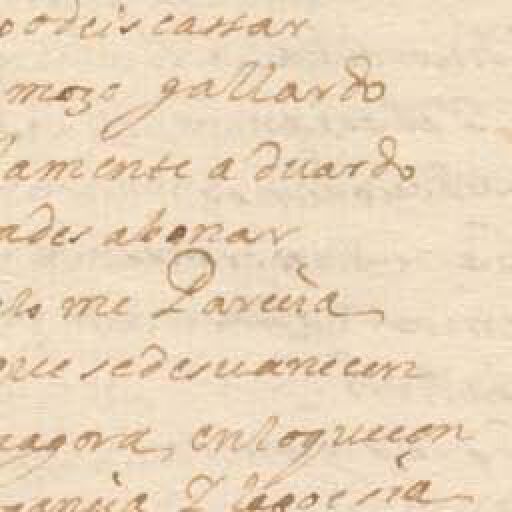 podeis cassar
mozo gallardo
lamente a duardo
ades abonar
elo me Parecia
que se desuanecen
nagora, enloquecen
gancia Y la poesia